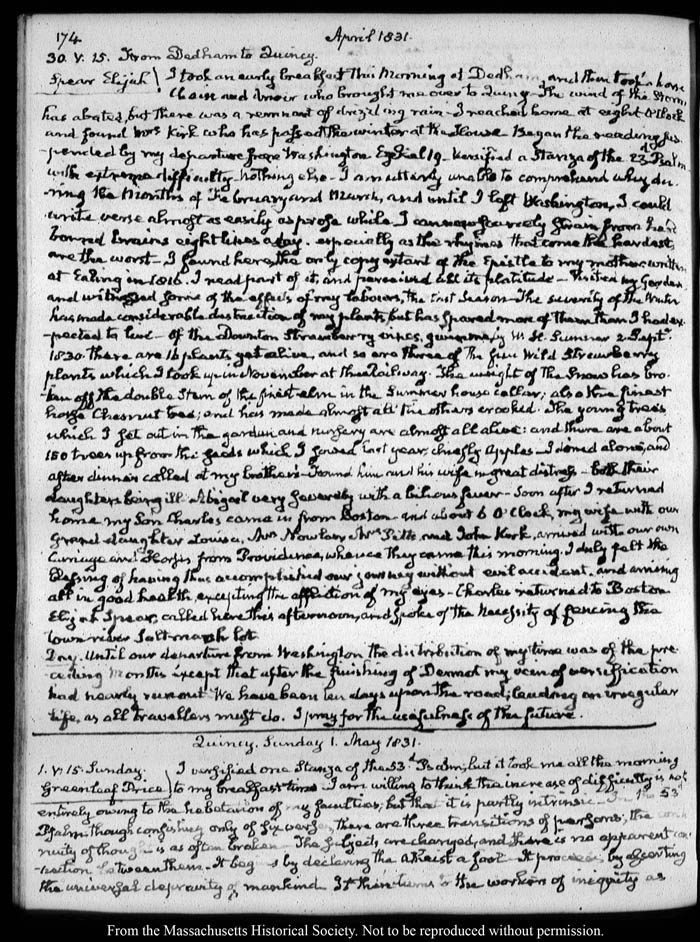 174
April 1831.
30. V: 15. From Dedham to Quincy.
Spear Elijah } I took an early breakfast this Morning at Dedham, and then took a horse
Chaise and driver who brought me over to Quincy. The wind of the Storm
has abated, but there was a remnant of drizzling rain. I reached home at eight O'Clock
and found Mrs Kirk who has passed the winter at the House. Began the reading sus-
pended by my departure from Washington Ezekiel 19. Versified a Stanza of the 23d Psalm
with extreme difficulty. Nothing else. I am utterly unable to comprehend why du-
ring the Months of February and March, and until I left Washington, I could
write verse almost as easily as prose while I can now scarcely strain from hard
bound brains eight lines a day. especially as the rhymes that come the hardest,
are the worst. I found here, the only copy extant of the Epistle to my mother written
at Ealing in 1816. I read part of it, and perceived all its platitude. Visited my Garden
and witnessed some of the effects of my labours, the last Season. The severity of the Winter
has made considerable destruction of my plants, but has spared more of them than I had ex-
pected to live. Of the Downton Strawberry vines, given me by W. H. Sumner 2 Septr
1830. there are 16 plants yet alive, and so are three of the five Wild Strawberry
plants which I took up in November at the Railway. The weight of the Snows has bro-
ken off the double Stem of the finest elm in the Summer house cellar; also the finest
horse Chesnut tree; and has made almost all the others crooked. The young trees
which I set out in the garden and nursery are almost all alive: and there are about
150 trees up from the seeds which I sowed last year, chiefly Apples. I dined alone, and
after dinner called at my brother's. Found him and his wife in great distress. both their
daughters being ill. Abigail very severely with a bilious fever. Soon after I returned
home my Son Charles came in from Boston and about 6 O'Clock, my wife with our
Grand daughter Louisa, Mrs Nowlan, Mrs Pitts and John Kirk, arrived with our own
Carriage and Horses from Providence, whence they came this morning. I duly felt the
blessing of having thus accomplished our journey without evil accident, and arriving
all in good health, excepting the affection of my eyes. Charles returned to Boston
Elijah Spear, called here this afternoon, and spoke of the necessity of fencing the
town river Salt marsh lot
Day. Until our departure from Washington the distribution of my time was of the pre-
ceding Months except that after the finishing of Dermot my vein of versification
had nearly run out. We have been ten days upon the road; leading an irregular
life, as all travellers must do. I pray for the usefulness of the future.
Quincy. Sunday 1. May 1831.
1. V: 15. Sunday. I versified one Stanza of the 53d Psalm; but it took me all the morning
Greenleaf Price } to my breakfast time I am willing to think the increase of difficulty is not
entirely owing to the hebetation of my faculties; but that it is partly intrinsic. In the 53d
Psalm though consisting only of six verses, there are three transitions of persons; the conti-
nuity of thought is as often broken. The subjects are changed, and there is no apparent con-
nection between them. It begins by declaring the Atheist a fool. It proceeds, by asserting
the universal depravity of mankind. It then turns to the workers of iniquity as
From the Massachusetts Historical Society. Not to be reproduced without permission.